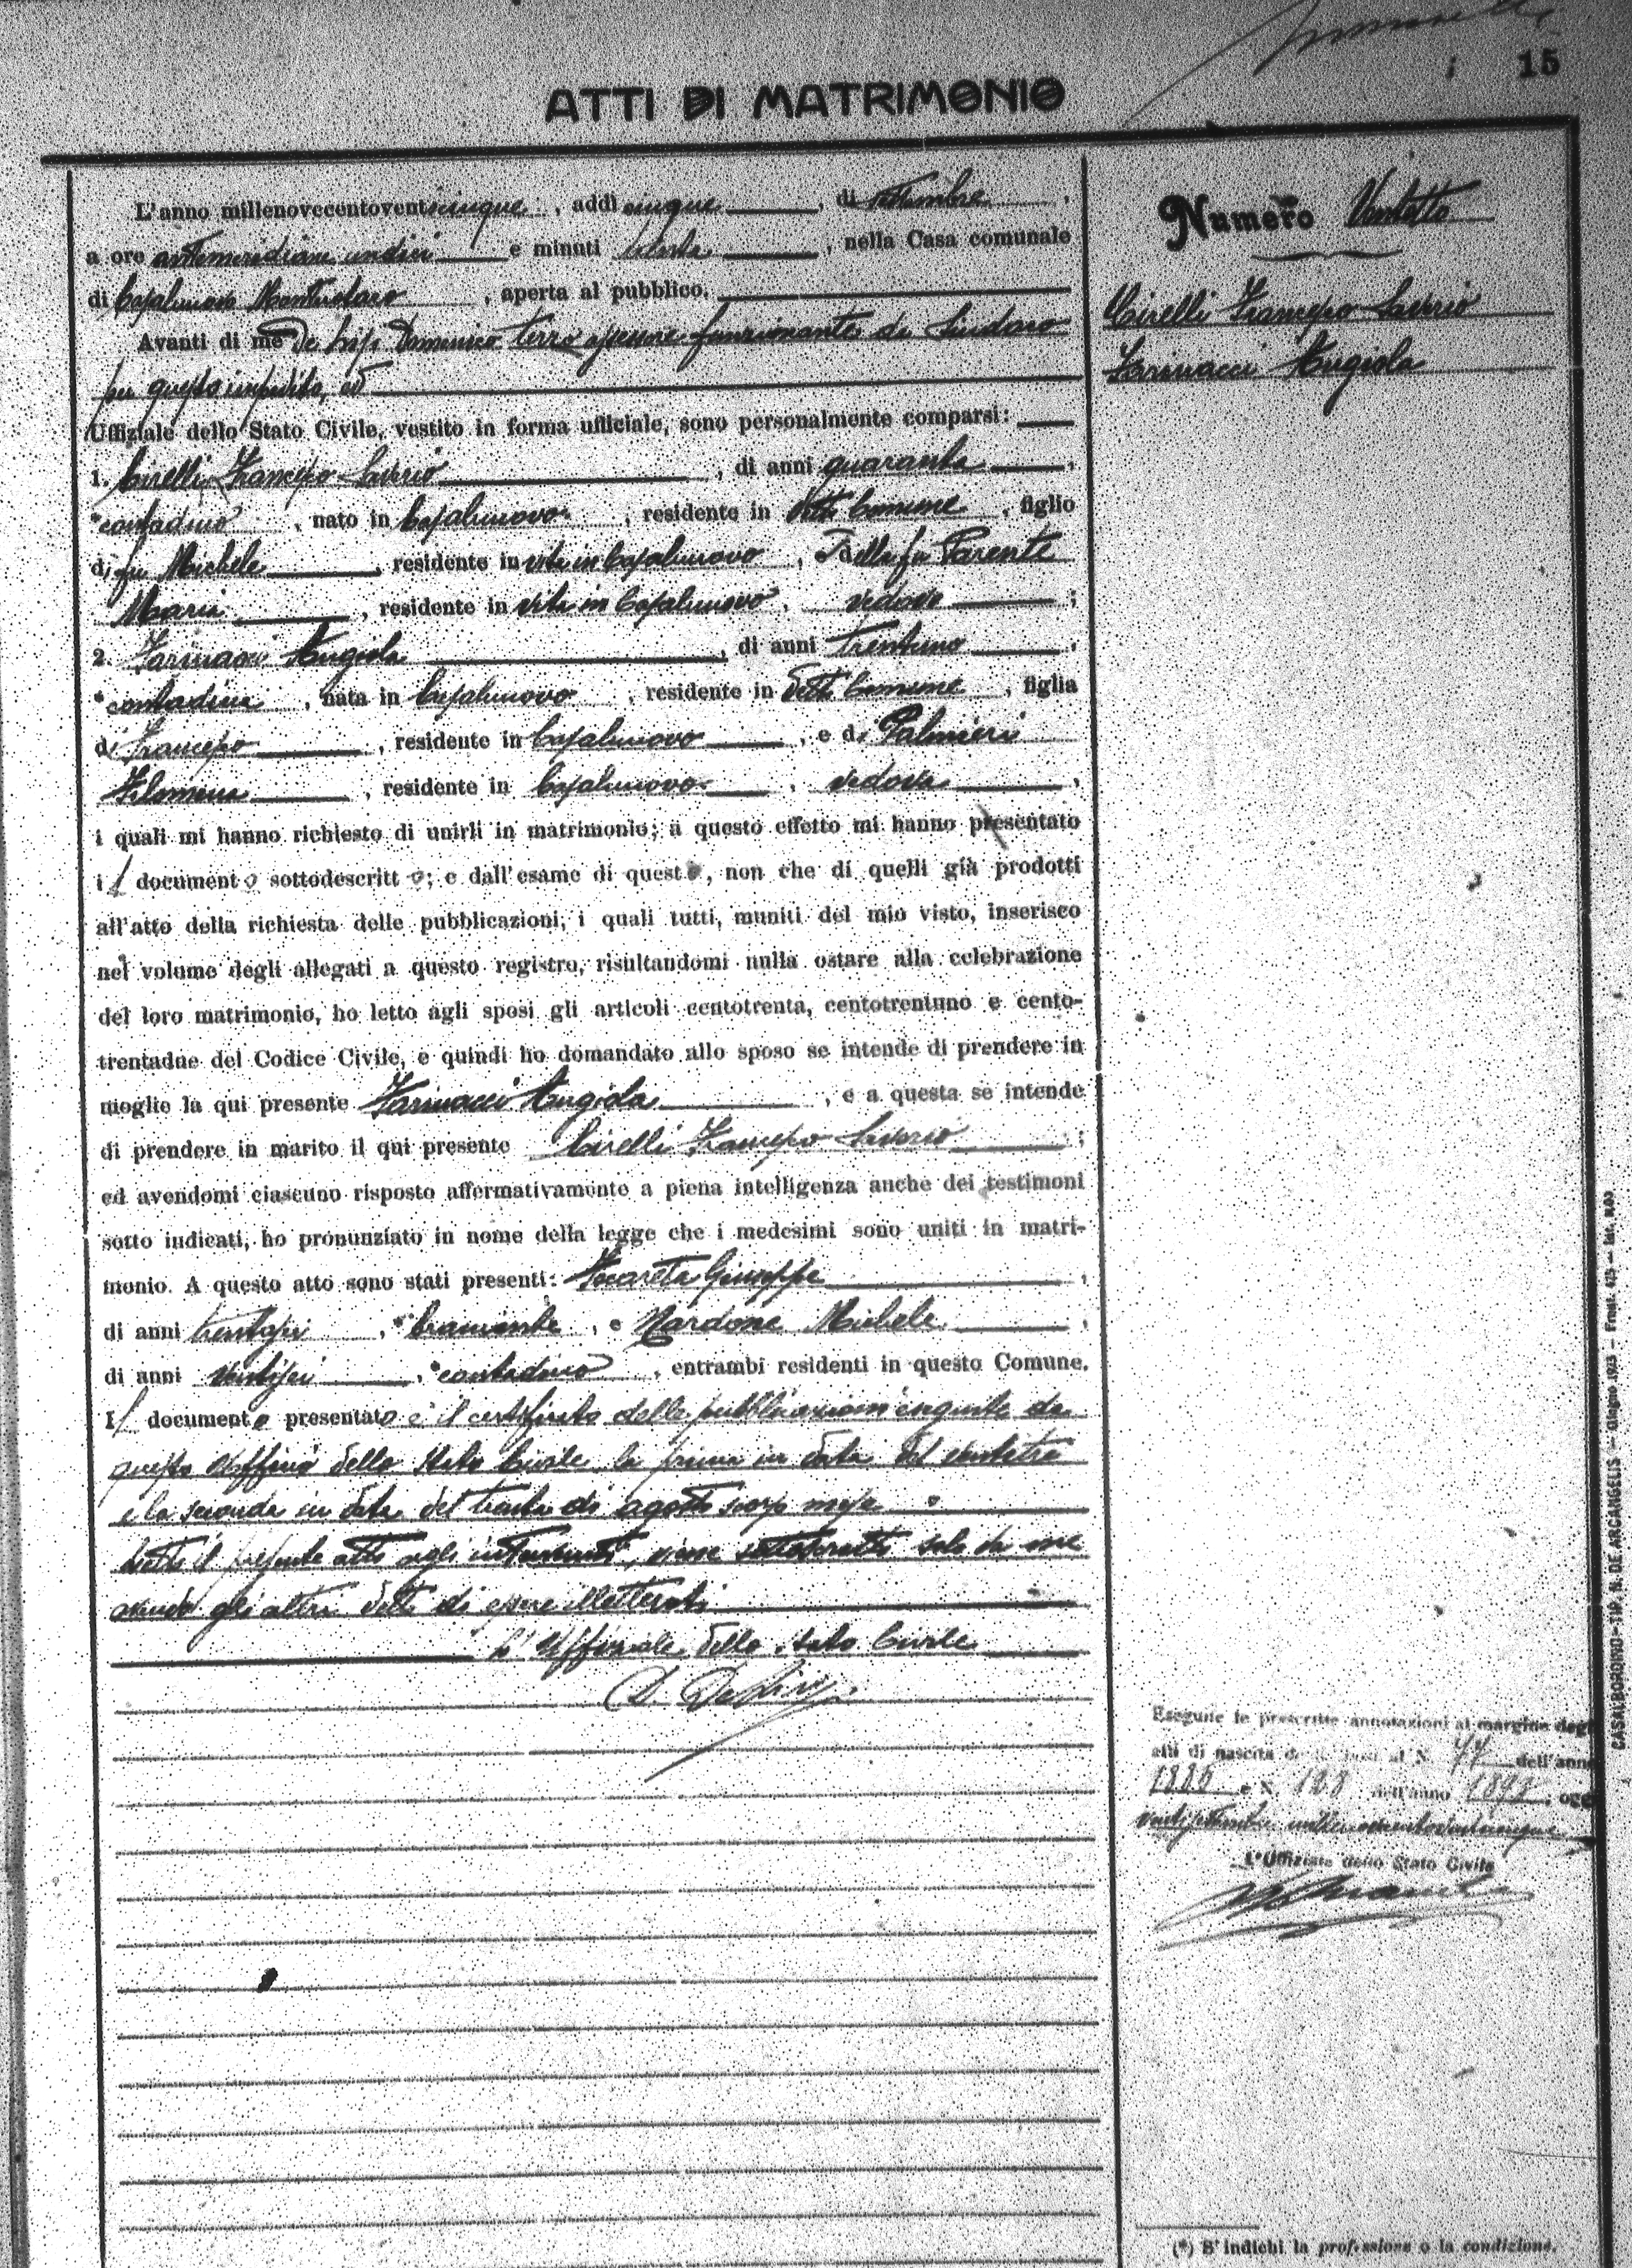 15
ATTI DI MATRIMONIO
L'anno millenovecentoventicinque, addì cinque, di settembre,
a ore antimeridiane undici e minuti trenta, nella Casa comunale
di Casalnuovo Monterotaro, aperta al pubblico.
Avanti di me De Domenico terzo assessore funzionante da Sindaco
per questo impedito, ed
Uffiziale dello Stato Civile, vestito in forma ufficiale, sono personalmente comparsi:
1. Cirelli Francesco Saverio, di anni quaranta,
*contadino, nato in Casalnuovo, residente in detto Comune, figlio
di fu Michele, residente in vita in Casalnuovo, e della fu Parente
Maria, residente in vita in Casalnuovo, vedovo;
2. Farinacci Angiola, di anni trentuno,
*contadina, nata in Casalnuovo, residente in detto Comune, figlia
di Francesco, residente in Casalnuovo, e di Palmieri
Filomena, residente in Casalnuovo, vedova,
i quali mi hanno richiesto di unirli in matrimonio; a questo effetto mi hanno presentato
il documento sottodescritto; e dall'esame di questo, non che di quelli già prodotti
all'atto della richiesta delle pubblicazioni, i quali tutti, muniti del mio visto, inserisco
nel volume degli allegati a questo registro, risultandomi nulla ostare alla celebrazione
del loro matrimonio, ho letto agli sposi gli articoli centotrenta, centotrentuno e cento-
trentadue del Codice Civile, e quindi ho domandato allo sposo se intende di prendere in
moglie la qui presente Farinacci Angiola, e a questa se intende
di prendere in marito il qui presente Cirelli Francesco Saverio;
ed avendomi ciascuno risposto affermativamente a piena intelligenza anche dei testimoni
sotto indicati, ho pronunziato in nome della legge che i medesimi sono uniti in matri-
monio. A questo atto sono stati presenti: Giuseppe,
di anni trentasei, *bracciante, e Nardone Michele,
di anni ventisei, *contadino, entrambi residenti in questo Comune.
Il documento presentato è il certificato delle pubblicazioni eseguite da
questo Uffizio dello Stato Civile la prima in data del ventitre
e la seconda in data del trenta di agosto scorso mese.
Letto il presente atto agli intervenuti, viene sottoscritto solo da me
avendo gli altri detto di essere illetterati.
L'Uffiziale dello Stato Civile
Numero Ventotto
Cirelli Francesco Saverio
Farinacci Angiola
Eseguite le prescritte annotazioni al margine degli
atti di nascita degli sposi al N. 77 dell'anno
1885 e N. 128 dell'anno , oggi
L'Uffiziale dello Stato Civile
(*) S'indichi la professione o la condizione.
CASALBORDINO - TIP. N. DE ARCANGELIS - Giugno 1925